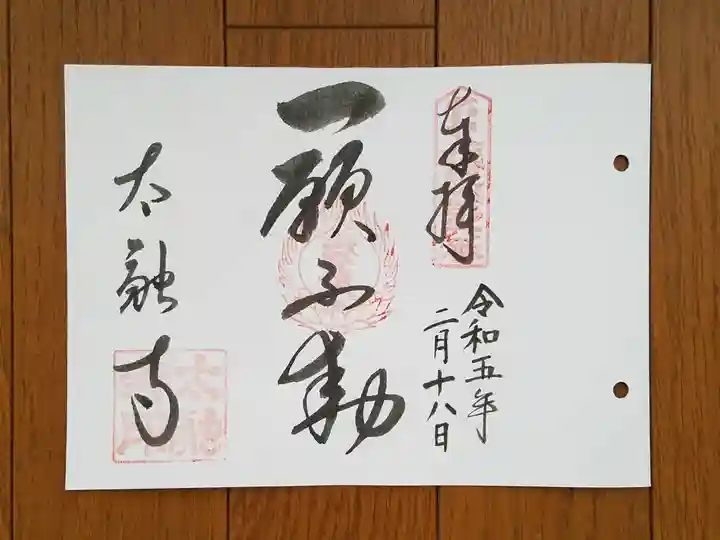 奉拝
令和五年
二月十八日
一願不動
太融寺